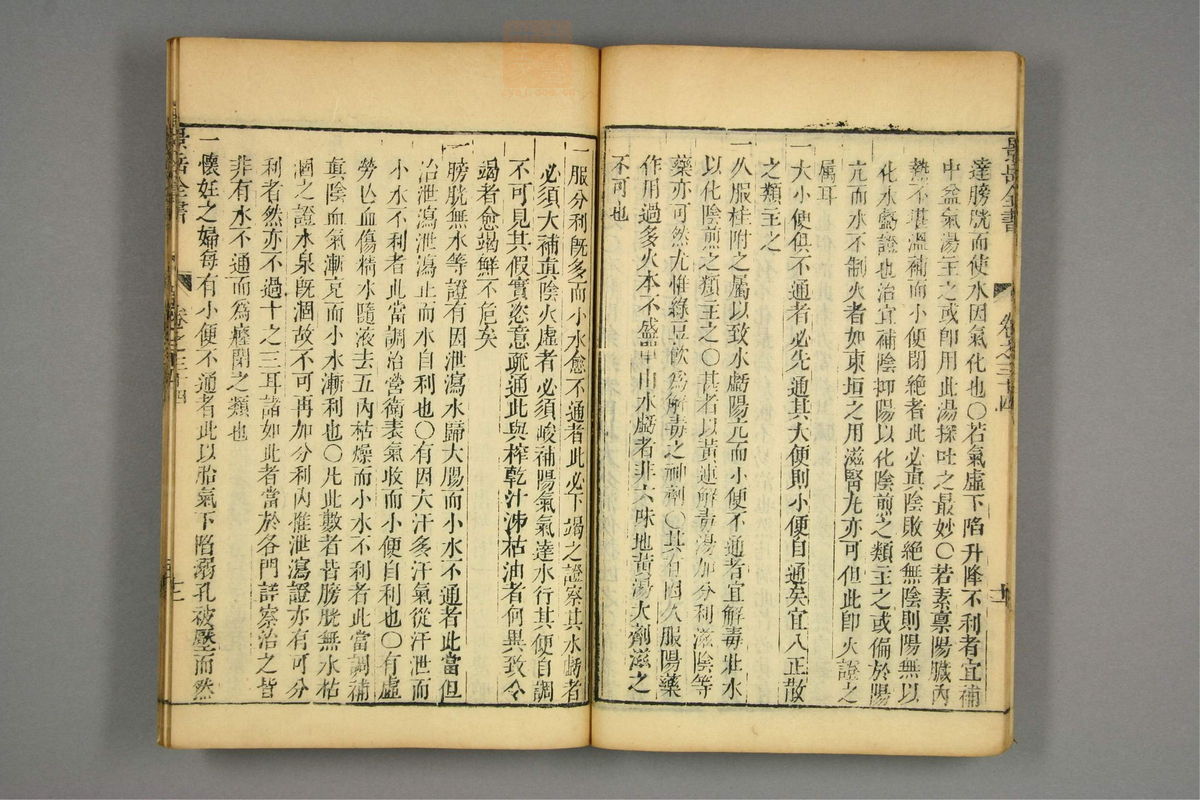 景岳全書
卷之三十四
達膀胱而使水因氣化也〇若氣虛下陷升降不利者宜補
中益氣湯主之或卽用此湯探吐之最妙〇若素禀陽臟內
熱不堪溫補而小便閉絕者此必眞陰敗絕無陰則陽無以
化水虧證也治宜補陰抑陽以化陰煎之類主之或偏於陽
亢而水不制火者如東垣之用滋腎丸亦可但此卽火證之
屬耳
一大小便俱不通者必先通其大便則小便自通矣宜八正散
之類主之
一久服桂附之屬以致水虧陽亢而小便不通者宜解毒壯水
以化陰煎之類主之〇甚者以黃連解毒湯加分利滋陰等
藥亦可然尤惟綠豆飲爲解毒之神劑〇其有因久服陽藥
作用過多火本不盛單由水虧者非六味地黃湯大劑滋之
不可也
一服分利旣多而小水愈不通者此必下竭之證察其水虧者
必須大補眞陰火虛者必須峻補陽氣氣達水行其便自調
不可見其假實恣意疏通此與榨乾汁沸枯油者何異致令
竭者愈竭鮮不危矣
一膀胱無水等證有因泄瀉水歸大腸而小水不通者此當但
治泄瀉泄瀉止而水自利也〇有因大汗多汗氣從汗泄而
小水不利者此當調治營衛表氣收而小便自利也〇有虛
勞亡血傷精水隨液去五內枯燥而小水不利者此當調補
眞陰血氣漸充而小水漸利也〇凡此數者皆膀胱無水枯
涸之證水泉旣涸故不可再加分利內惟泄瀉證亦有可分
利者然亦不過十之三耳諸如此者當於各門詳察治之皆
非有水不通而爲癃閉之類也
一懷妊之婦每有小便不通者此以胎氣下陷溺孔被壓而然
景岳全書
卷之三十四